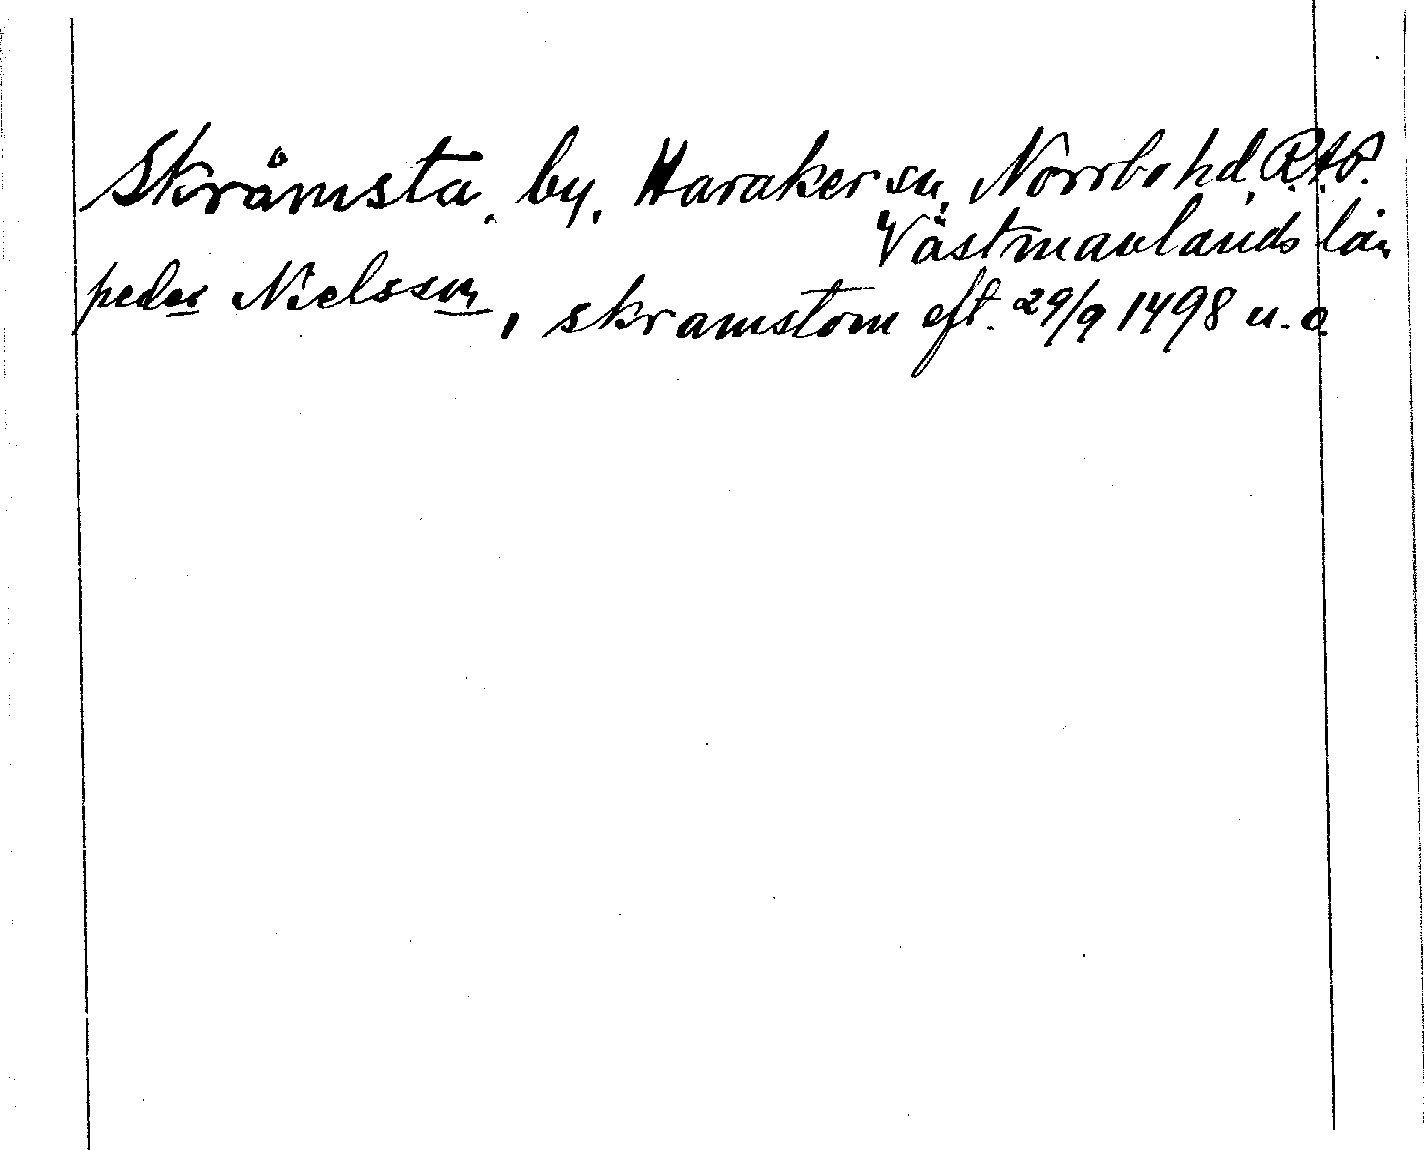 Skråmsta, by, Haraker sn, Norrbo hd, R.A.P.
Västmanlands län
peder Nielsson, skramstom eft. 29/9 1498 u.o.